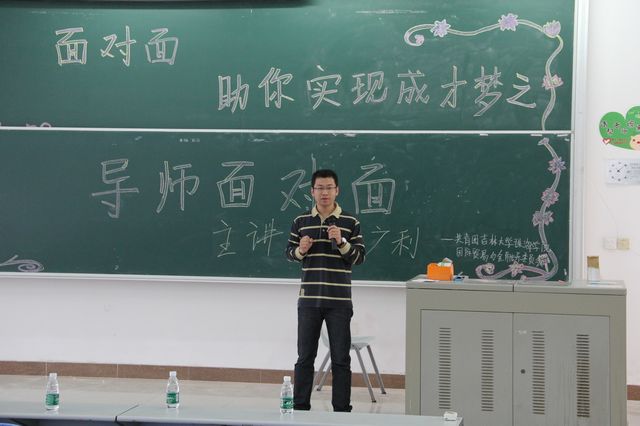 面对面
助你实现成才梦之
导师面对面
主讲 之利
——共青团吉林大学珠海学院
国际贸易与金融系委员会